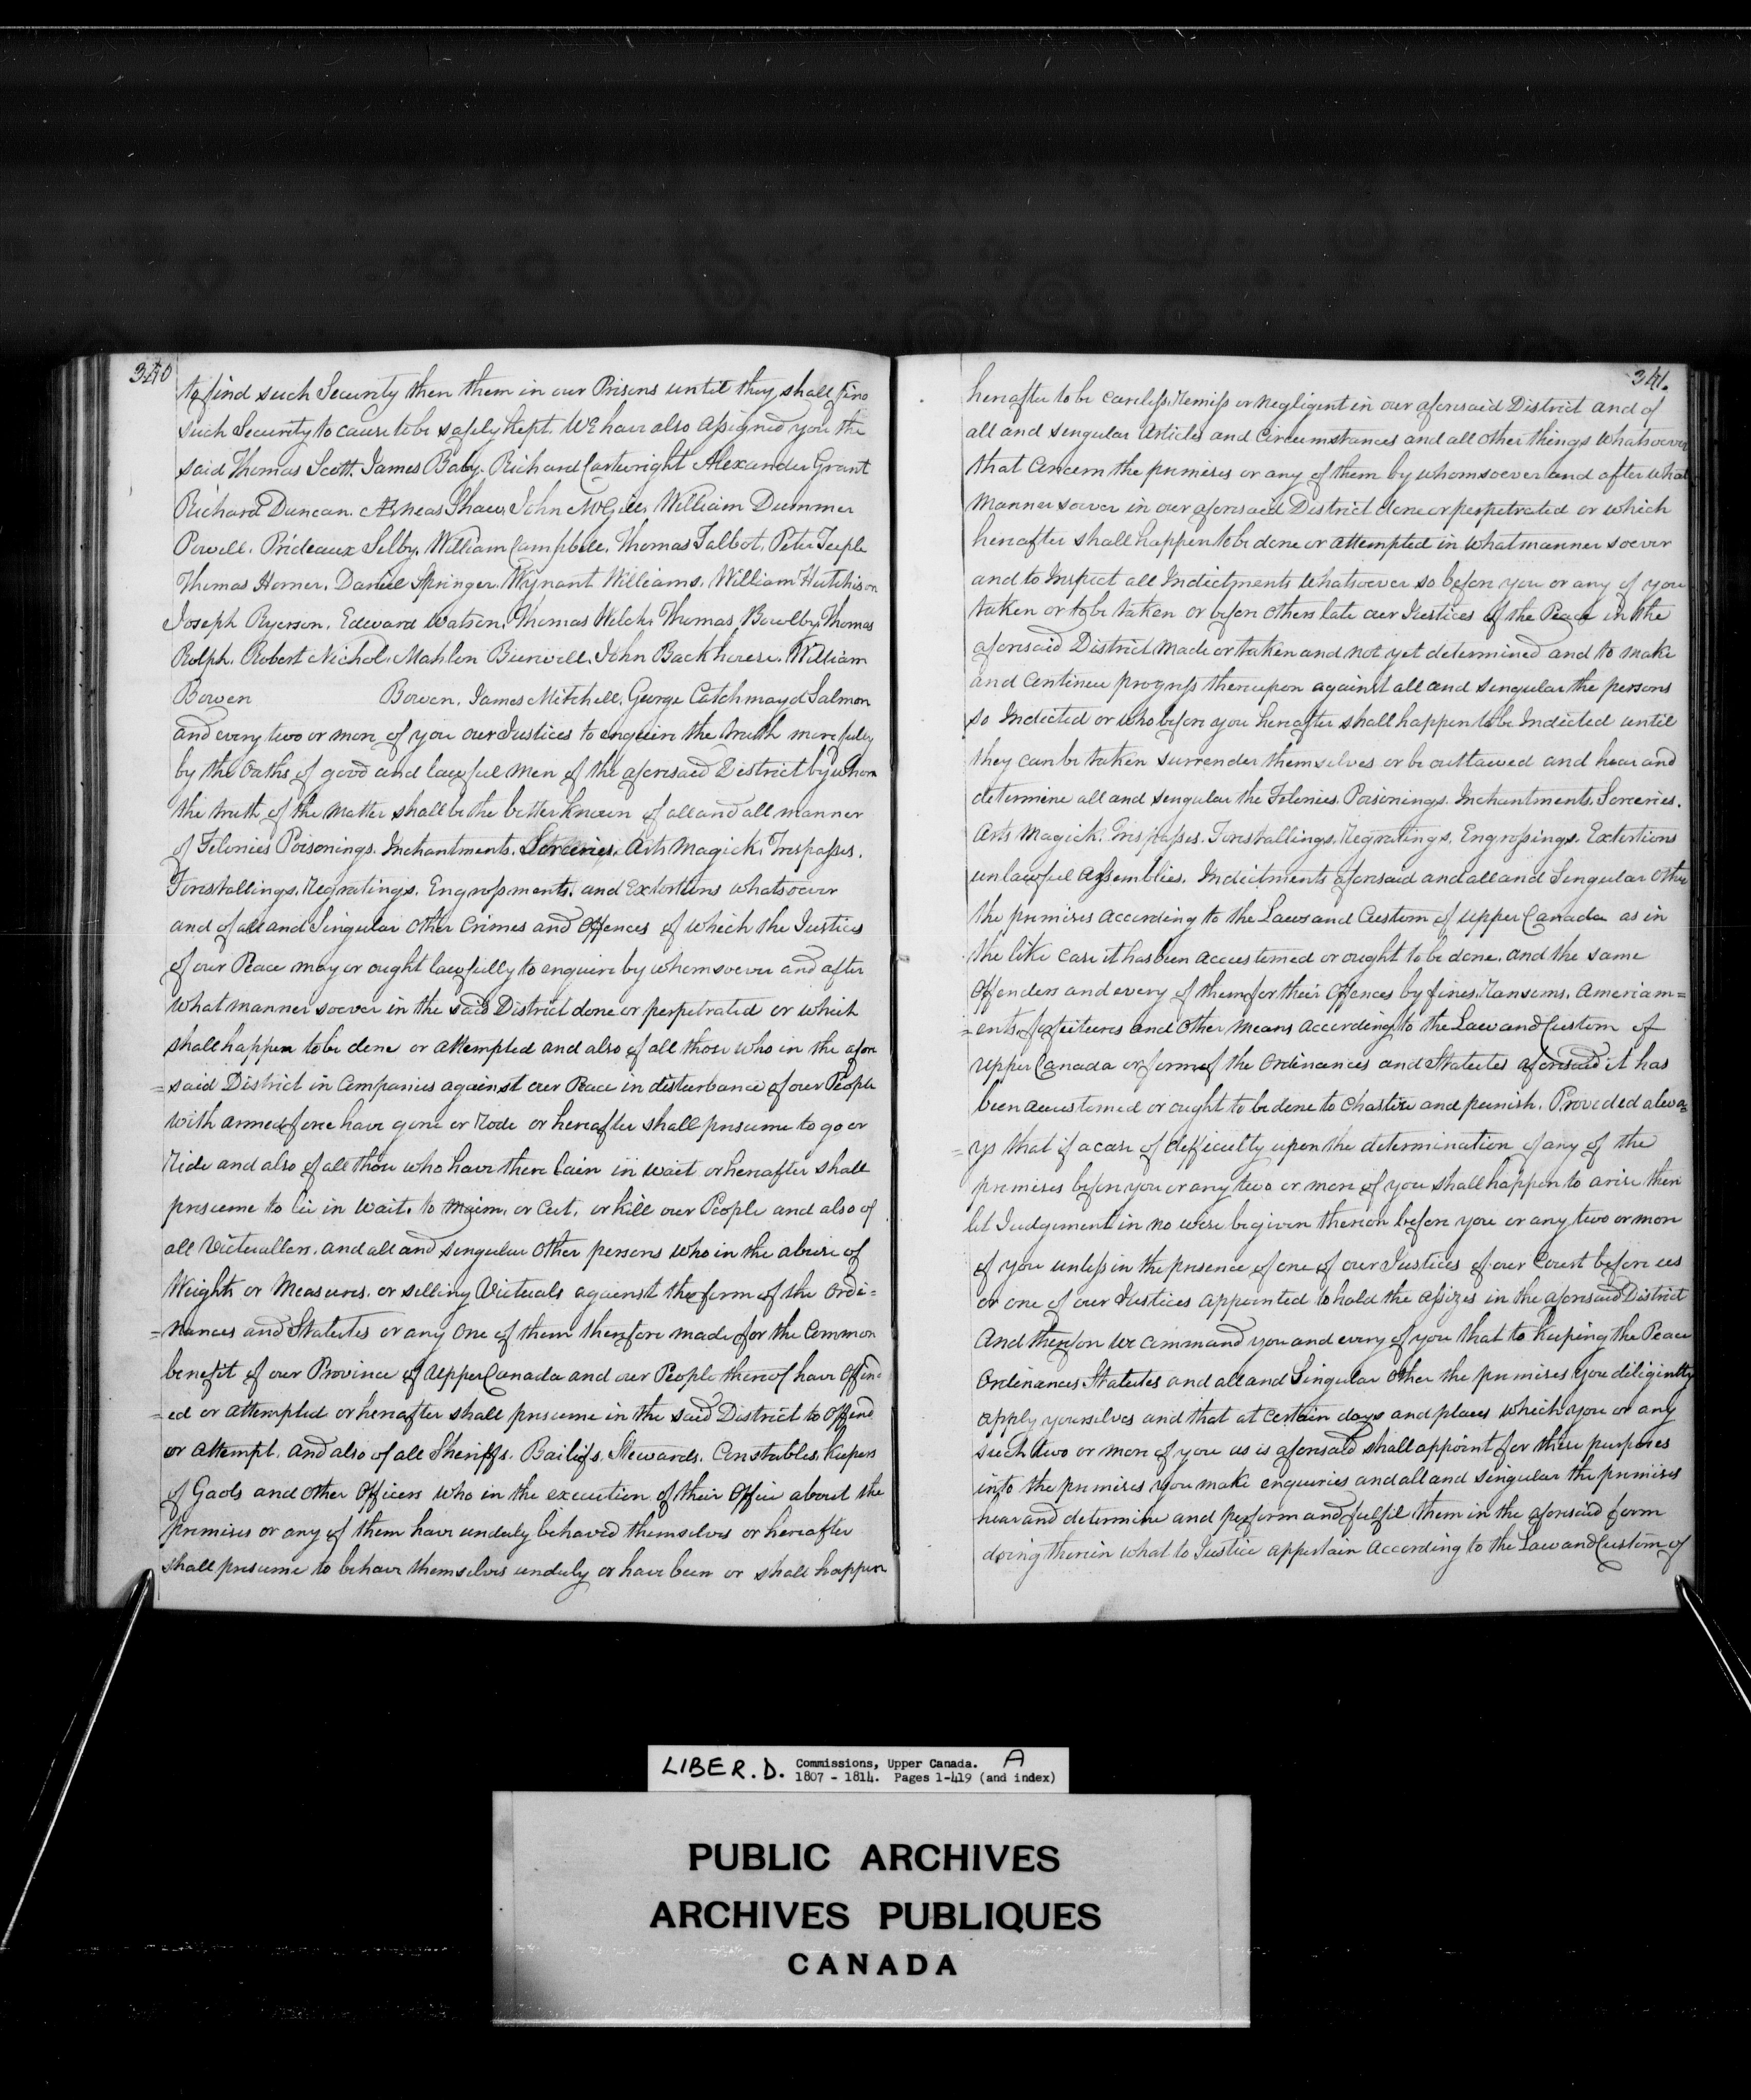 340
to find such Security then them in our Prisons until they shall find
such Security to cause to be safely Kept. WE have also assigned you the
said Thomas Scott. James Baby. Richard Cartwright Alexander Grant
Richard Duncan. Æneas Shaw, John McGill, William Dummer
Powell. Prideaux Selby, William Campbell, Thomas Talbot, Peter Teeple
Thomas Horner. Daniel Springer. Wynant Williams, William Hutchison
Joseph Ryerson, Edward Watson, Thomas Welch, Thomas Bowlby, Thomas
Rolph. Robert Nichol. Mahlon Burwell. John Backhouse. William
Bowen Bowen, James Mitchell, George Catchmayd Salmon
and every two or more of you our Justices to enquire the truth more fully
by the Oaths of good and lawful Men of the aforesaid District by whom
the truth of the Matter shall be the better known of all and all manner
of Felonies Poisonings. Inchantments. Sorceries. Arts Magick, Trespasses.
Forestallings, Regratings, Engrossments, and Extortions whatsoever
and of all and Singular other Crimes and Offences of which the Justices
of our Peace may or ought lawfully to enquire by whomsoever and after
what manner soever in the said District done or perpetrated or which
shall happen to be done or attempted and also of all those who in the afore
=said District in Companies against our Peace in disturbance of our People
with armed force have gone or Rode or hereafter shall presume to go or
Ride and also of all those who have there lain in wait or hereafter shall
presume to lie in wait, to Maim, or Cut, or kill our People and also of
all Victuallers, and all and singular other persons who in the abuse of
Weights or Measures, or selling Victuals against the form of the Ordi=
=nances and Statutes or any one of them therefore made for the Common
benefit of our Province of Upper Canada and our People thereof have Offend
=ed or attempted or hereafter shall presume in the said District to offend
or attempt. and also of all Sheriffs. Bailifs. Stewards. Constables, Keepers
of Gaols and other Officers who in the execution of their Office about the
premises or any of them have unduly behaved themselves or hereafter
shall presume to behave themselves unduly or have been or shall happen
341.
hereafter to be careless, Remiss or negligent in our aforesaid District and of
all and singular Articles and Circumstances and all other things whatsoever
that Concern the premises or any of them by whomsoever and after what
Manner soever in our aforesaid District done or perpetrated or which
hereafter shall happen to be done or attempted in what manner soever
and to Inspect all Indictments whatsoever so before you or any of you
taken or to be taken or before others late our Justices of the Peace in the
aforesaid District Made or taken and not yet determined and to make
and Continue progress thereupon against all and singular the persons
so Indicted or who before you hereafter shall happen to be Indicted until
they can be taken surrender themselves or be outlawed and hear and
determine all and singular the Felonies. Poisonings. Inchantments. Sorceries.
Arts Magick. Trespasses. Forestallings, Regratings, Engrossings. Extortions
unlawful Assemblies. Indictments aforesaid and all and Singular other
the premises according to the Laws and Custom of Upper Canada as in
the like case it has been accustomed or ought to be done, and the same
Offenders and every of them for their Offences by fines, Ransoms, Ameriam=
=ents, forfeitures and other means according to the Law and Custom of
Upper Canada or form of the Ordinances and Statutes aforesaid it has
been accustomed or ought to be done to Chastise and punish. Provided alwa
=ys that if a case of difficulty upon the determination of any of the
premises before you or any two or more of you shall happen to arise then
let Judgement in no wise be given thereon before you or any two or more
of you unless in the presence of one of our Justices of our Court before us
or one of our Justices appointed to hold the Assizes in the aforesaid District
And therefore We command you and every of you that to Keeping the Peace
Ordinances Statutes and all and Singular other the premises you diligently
apply yourselves and that at certain days and places which you or any
such two or more of you as is aforesaid shall appoint for these purposes
into the premises you make enquiries and all and singular the premises
hear and determine and perform and fulfil them in the aforesaid form
doing therein what to Justice appertain according to the Law and Custom of
LIBER. D. Commissions, Upper Canada. A
1807 - 1814. Pages 1-419 (and index)
PUBLIC ARCHIVES
ARCHIVES PUBLIQUES
CANADA